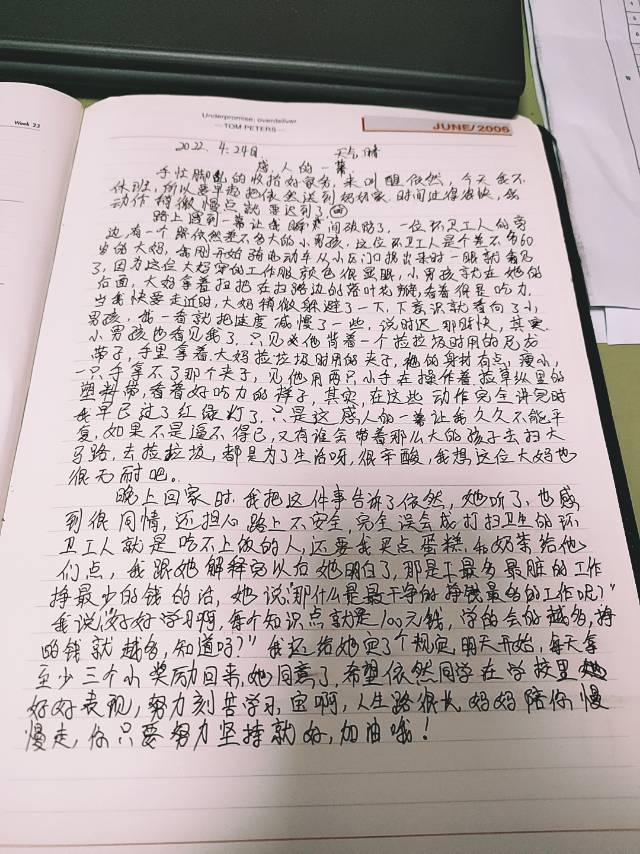 Week 23
Underpromise; overdeliver
— TOM PETERS —
JUNE/2006
2022. 4.24日 天气:晴
感人的一幕
手忙脚乱的收拾好家务,来叫醒依然,今天我不
休班,所以要早抱把依然送到奶奶家,时间过得很快,我
动作稍微慢点就要迟到了。
路上遇到一幕让我瞬间破防了,一位环卫工人的旁
边,有一个跟依然差不多大的小男孩,这位环卫工人是个差不多60
岁的大妈,我刚开始骑电动车从小区门拐出来时一眼就看见
了,因为这位大妈穿的工作服颜色很显眼,小男孩就在她的
后面,大妈拿着扫把在扫路边的落叶花瓣,看着很是吃力,
当我快要走近时,大妈稍微躲避了一下,下意识就看向了小
男孩,我一看就把速度减慢了一些,说时迟那时快,其实
小男孩也看见我了,只见他背着一个捡垃圾时用的尼龙
带子,手里拿着大妈捡垃圾时用的夹子,他的身材有点瘦小,
一只手拿不了那个夹子,见他用两只小手在操作着捡草丛里的
塑料带,看着好吃力的样子,其实,在这些动作完全讲完时
我早已过了红绿灯了,只是这感人的一幕让我久久不能平
复,如果不是逼不得已,又有谁会带着那么大的孩子去扫大
马路,去捡垃圾,都是为了生活呀,很辛酸,我想这位大妈也
很无耐吧。
晚上回家时,我把这件事告诉了依然,她听了,也感
到很同情,还担心路上不安全,完全误会成打扫卫生的环
卫工人就是吃不上饭的人,还要我买点蛋糕,和奶茶给他
们点,我跟她解释完以后她明白了,那是干最多最脏的工作
挣最少的钱的活,她说:"那什么是最干净的挣钱最多的工作呢?"
我说:"好好学习啊,每个知识点就是100元钱,学的会的越多,挣
的钱就越多,知道吗?"我还给她定了个规定,明天开始,每天拿
至少三个小奖励回来,她同意了,希望依然同学在学校里
好好表现,努力刻苦学习,宝啊,人生路很长,妈妈陪你慢
慢走,你只要努力坚持就好,加油哦!